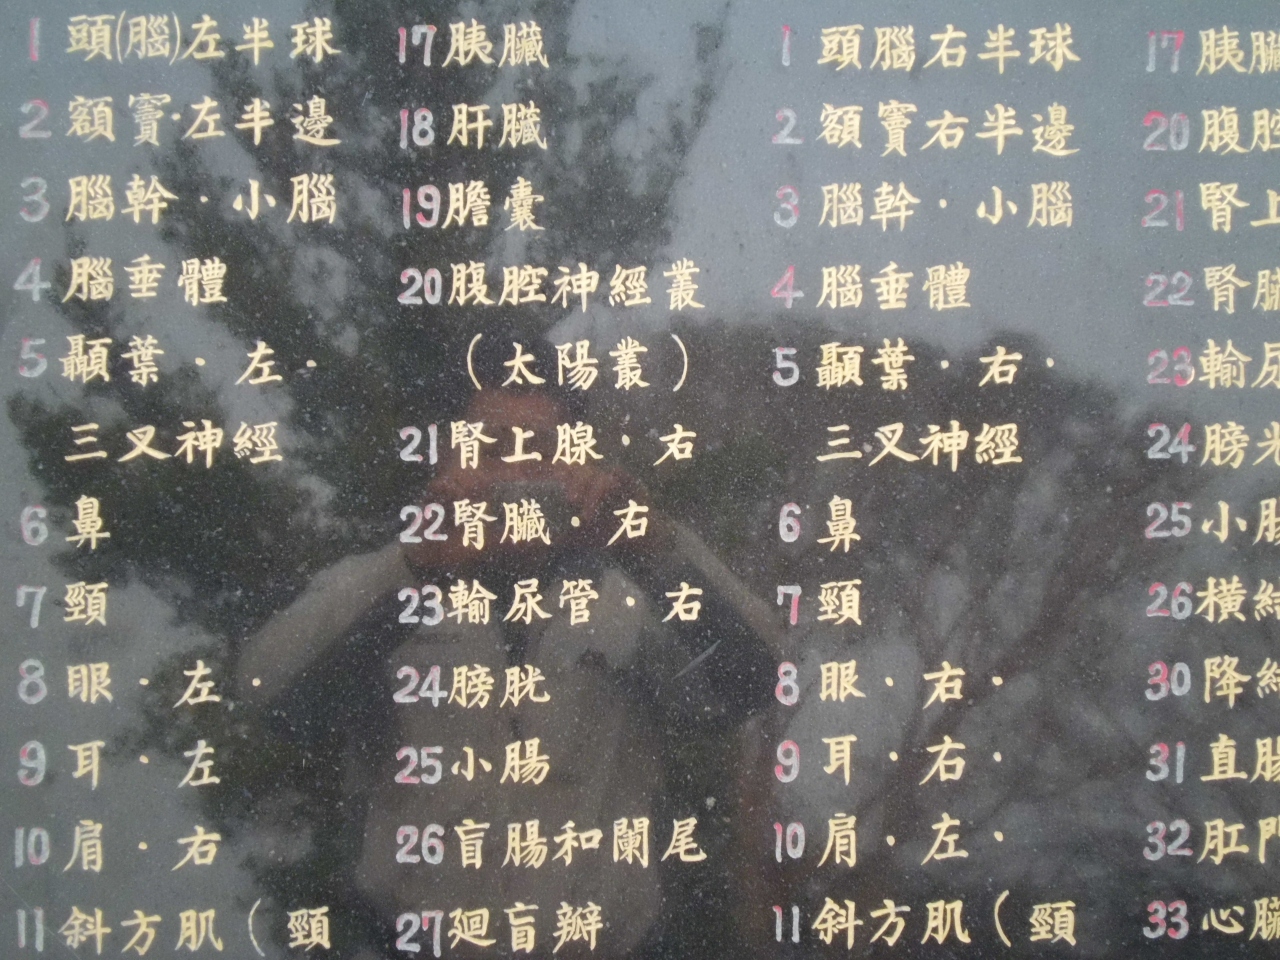 1 頭(腦)左半球
2 額竇·左半邊
3 腦幹·小腦
4 腦垂體
5 顳葉·左·
三叉神經
6 鼻
7 頸
8 眼·左·
9 耳·左
10 肩·右
11 斜方肌(頸
17 胰臟
18 肝臟
19 膽囊
20 腹腔神經叢
(太陽叢)
21 腎上腺·右
22 腎臟·右
23 輸尿管·右
24 膀胱
25 小腸
26 盲腸和闌尾
27 廻盲瓣
1 頭腦右半球
2 額竇右半邊
3 腦幹·小腦
4 腦垂體
5 顳葉·右·
三叉神經
6 鼻
7 頸
8 眼·右·
9 耳·右·
10 肩·左·
11 斜方肌(頸
17 胰臟
20 腹腔
21 腎上
22 腎臟
23 輸尿
24 膀胱
25 小腸
26 橫結
30 降結
31 直腸
32 肛門
33 心臟